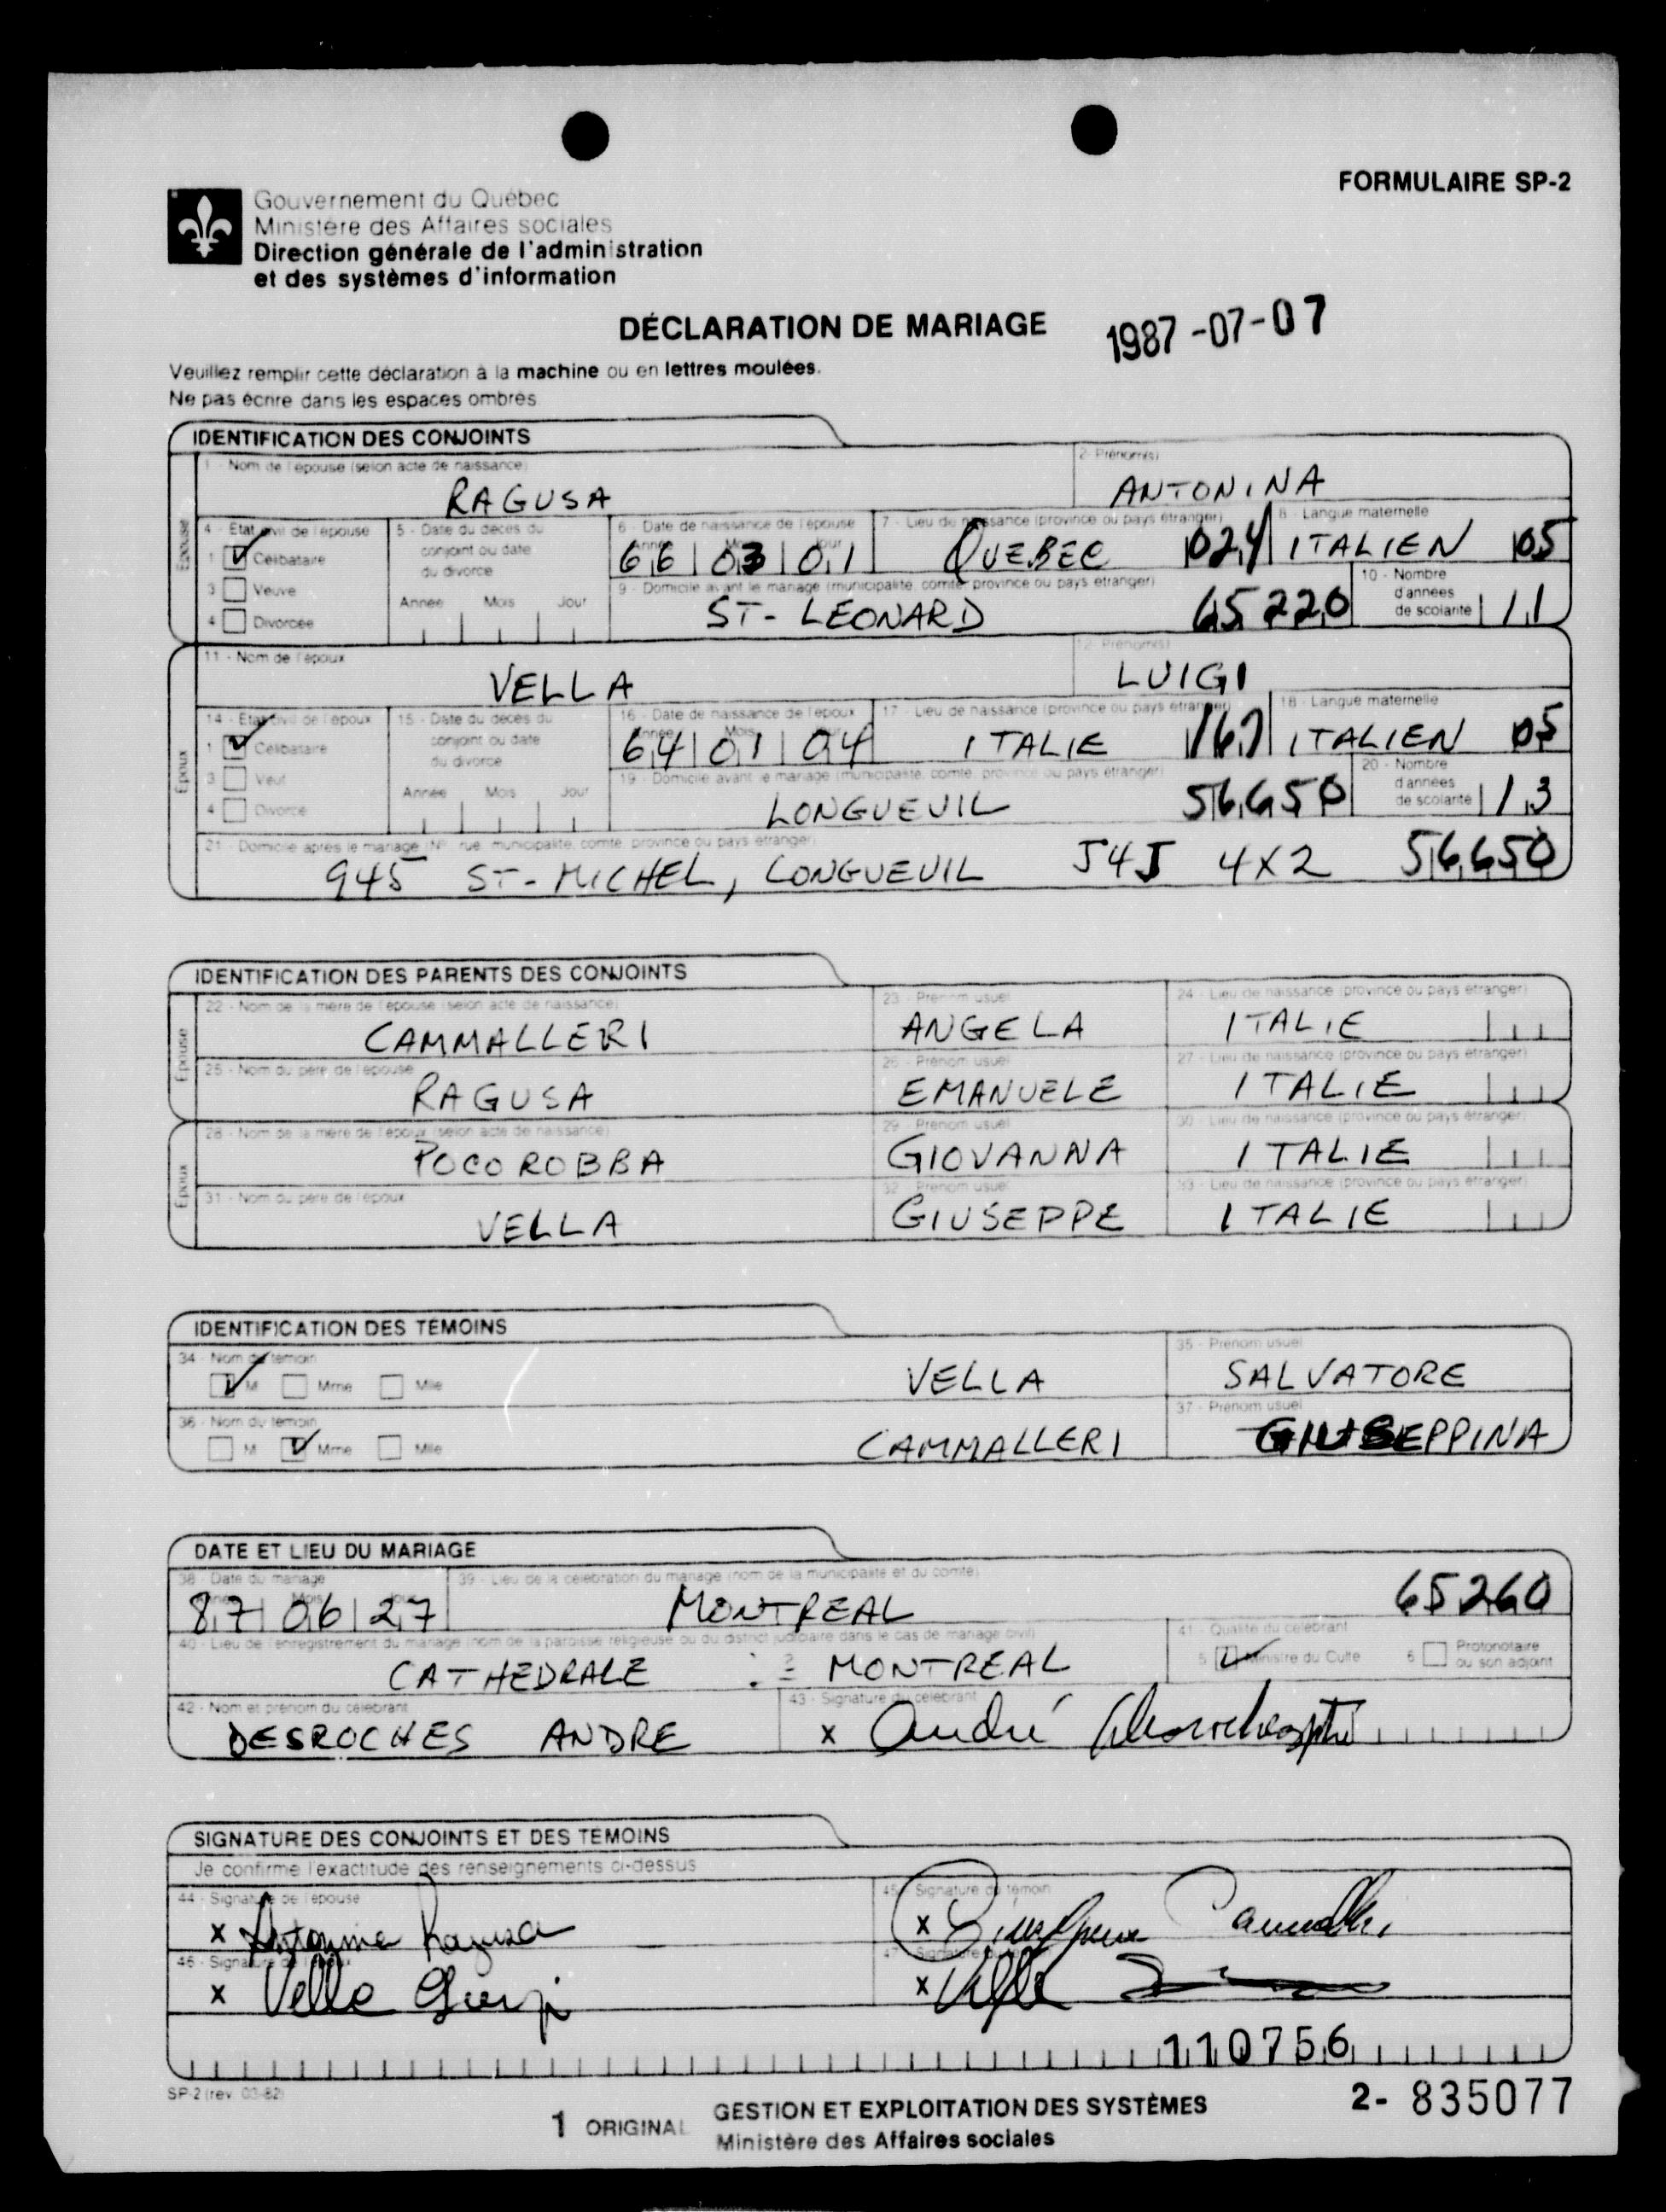 FORMULAIRE SP-2
Gouvernement du Québec
Ministère des Affaires sociales
Direction générale de l'administration
et des systèmes d'information
DÉCLARATION DE MARIAGE 1987-07-07
Veuillez remplir cette déclaration à la machine ou en lettres moulées.
Ne pas écrire dans les espaces ombrés
IDENTIFICATION DES CONJOINTS
Épouse
1 - Nom de l'épouse (selon acte de naissance) 2- Prénom(s)
RAGUSA ANTONINA
4 - État civil de l'épouse 5 - Date du décès du conjoint ou date du divorce 6 - Date de naissance de l'épouse 7 - Lieu de naissance (province ou pays étranger) 8 - Langue maternelle
1 Célibataire Année Mois Jour 66 03 01 QUEBEC 024 ITALIEN 05
3 Veuve 9 - Domicile avant le mariage (municipalité, comté, province ou pays étranger) 10 - Nombre d'années de scolarité
4 Divorcée Année Mois Jour ST- LEONARD 65220 11
Époux
11 - Nom de l'époux 12 - Prénom(s)
VELLA LUIGI
14 - État civil de l'époux 15 - Date du décès du conjoint ou date du divorce 16 - Date de naissance de l'époux 17 - Lieu de naissance (province ou pays étranger) 18 - Langue maternelle
1 Célibataire Année Mois Jour 64 01 04 ITALIE 167 ITALIEN 05
3 Veuf 19 - Domicile avant le mariage (municipalité, comté, province ou pays étranger) 20 - Nombre d'années de scolarité
4 Divorcé Année Mois Jour LONGUEUIL 56650 13
21 - Domicile après le mariage (N° rue, municipalité, comté, province ou pays étranger)
945 ST-MICHEL, LONGUEUIL J4J 4X2 56650
IDENTIFICATION DES PARENTS DES CONJOINTS
Épouse
22 - Nom de la mère de l'épouse (selon acte de naissance) 23 - Prénom usuel 24 - Lieu de naissance (province ou pays étranger)
CAMMALLERI ANGELA ITALIE
25 - Nom du père de l'épouse 26 - Prénom usuel 27 - Lieu de naissance (province ou pays étranger)
RAGUSA EMANUELE ITALIE
Époux
28 - Nom de la mère de l'époux (selon acte de naissance) 29 - Prénom usuel 30 - Lieu de naissance (province ou pays étranger)
POCOROBBA GIOVANNA ITALIE
31 - Nom du père de l'époux 32 - Prénom usuel 33 - Lieu de naissance (province ou pays étranger)
VELLA GIUSEPPE ITALIE
IDENTIFICATION DES TÉMOINS
34 - Nom du témoin 35 - Prénom usuel
M Mme Mlle VELLA SALVATORE
36 - Nom du témoin 37 - Prénom usuel
M Mme Mlle CAMMALLERI GIUSEPPINA
DATE ET LIEU DU MARIAGE
38 - Date du mariage 39 - Lieu de la célébration du mariage (nom de la municipalité et du comté)
Année Mois Jour 87 06 27 MONTREAL 65260
40 - Lieu de l'enregistrement du mariage (nom de la paroisse religieuse ou du district judiciaire dans le cas de mariage civil) 41 - Qualité du célébrant
CATHEDRALE : MONTREAL 5 Ministre du Culte 6 Protonotaire ou son adjoint
42 - Nom et prénom du célébrant 43 - Signature du célébrant
DESROCHES ANDRE x André Desroches ptre
SIGNATURE DES CONJOINTS ET DES TÉMOINS
Je confirme l'exactitude des renseignements ci-dessus
44 - Signature de l'épouse 45 - Signature du témoin
x Antonina Ragusa x Giuseppina Cammalleri
46 - Signature de l'époux 47 - Signature du témoin
x Vella Luigi x Vella
110756
SP-2 (rev. 03-82)
1 ORIGINAL GESTION ET EXPLOITATION DES SYSTÈMES 2- 835077
Ministère des Affaires sociales